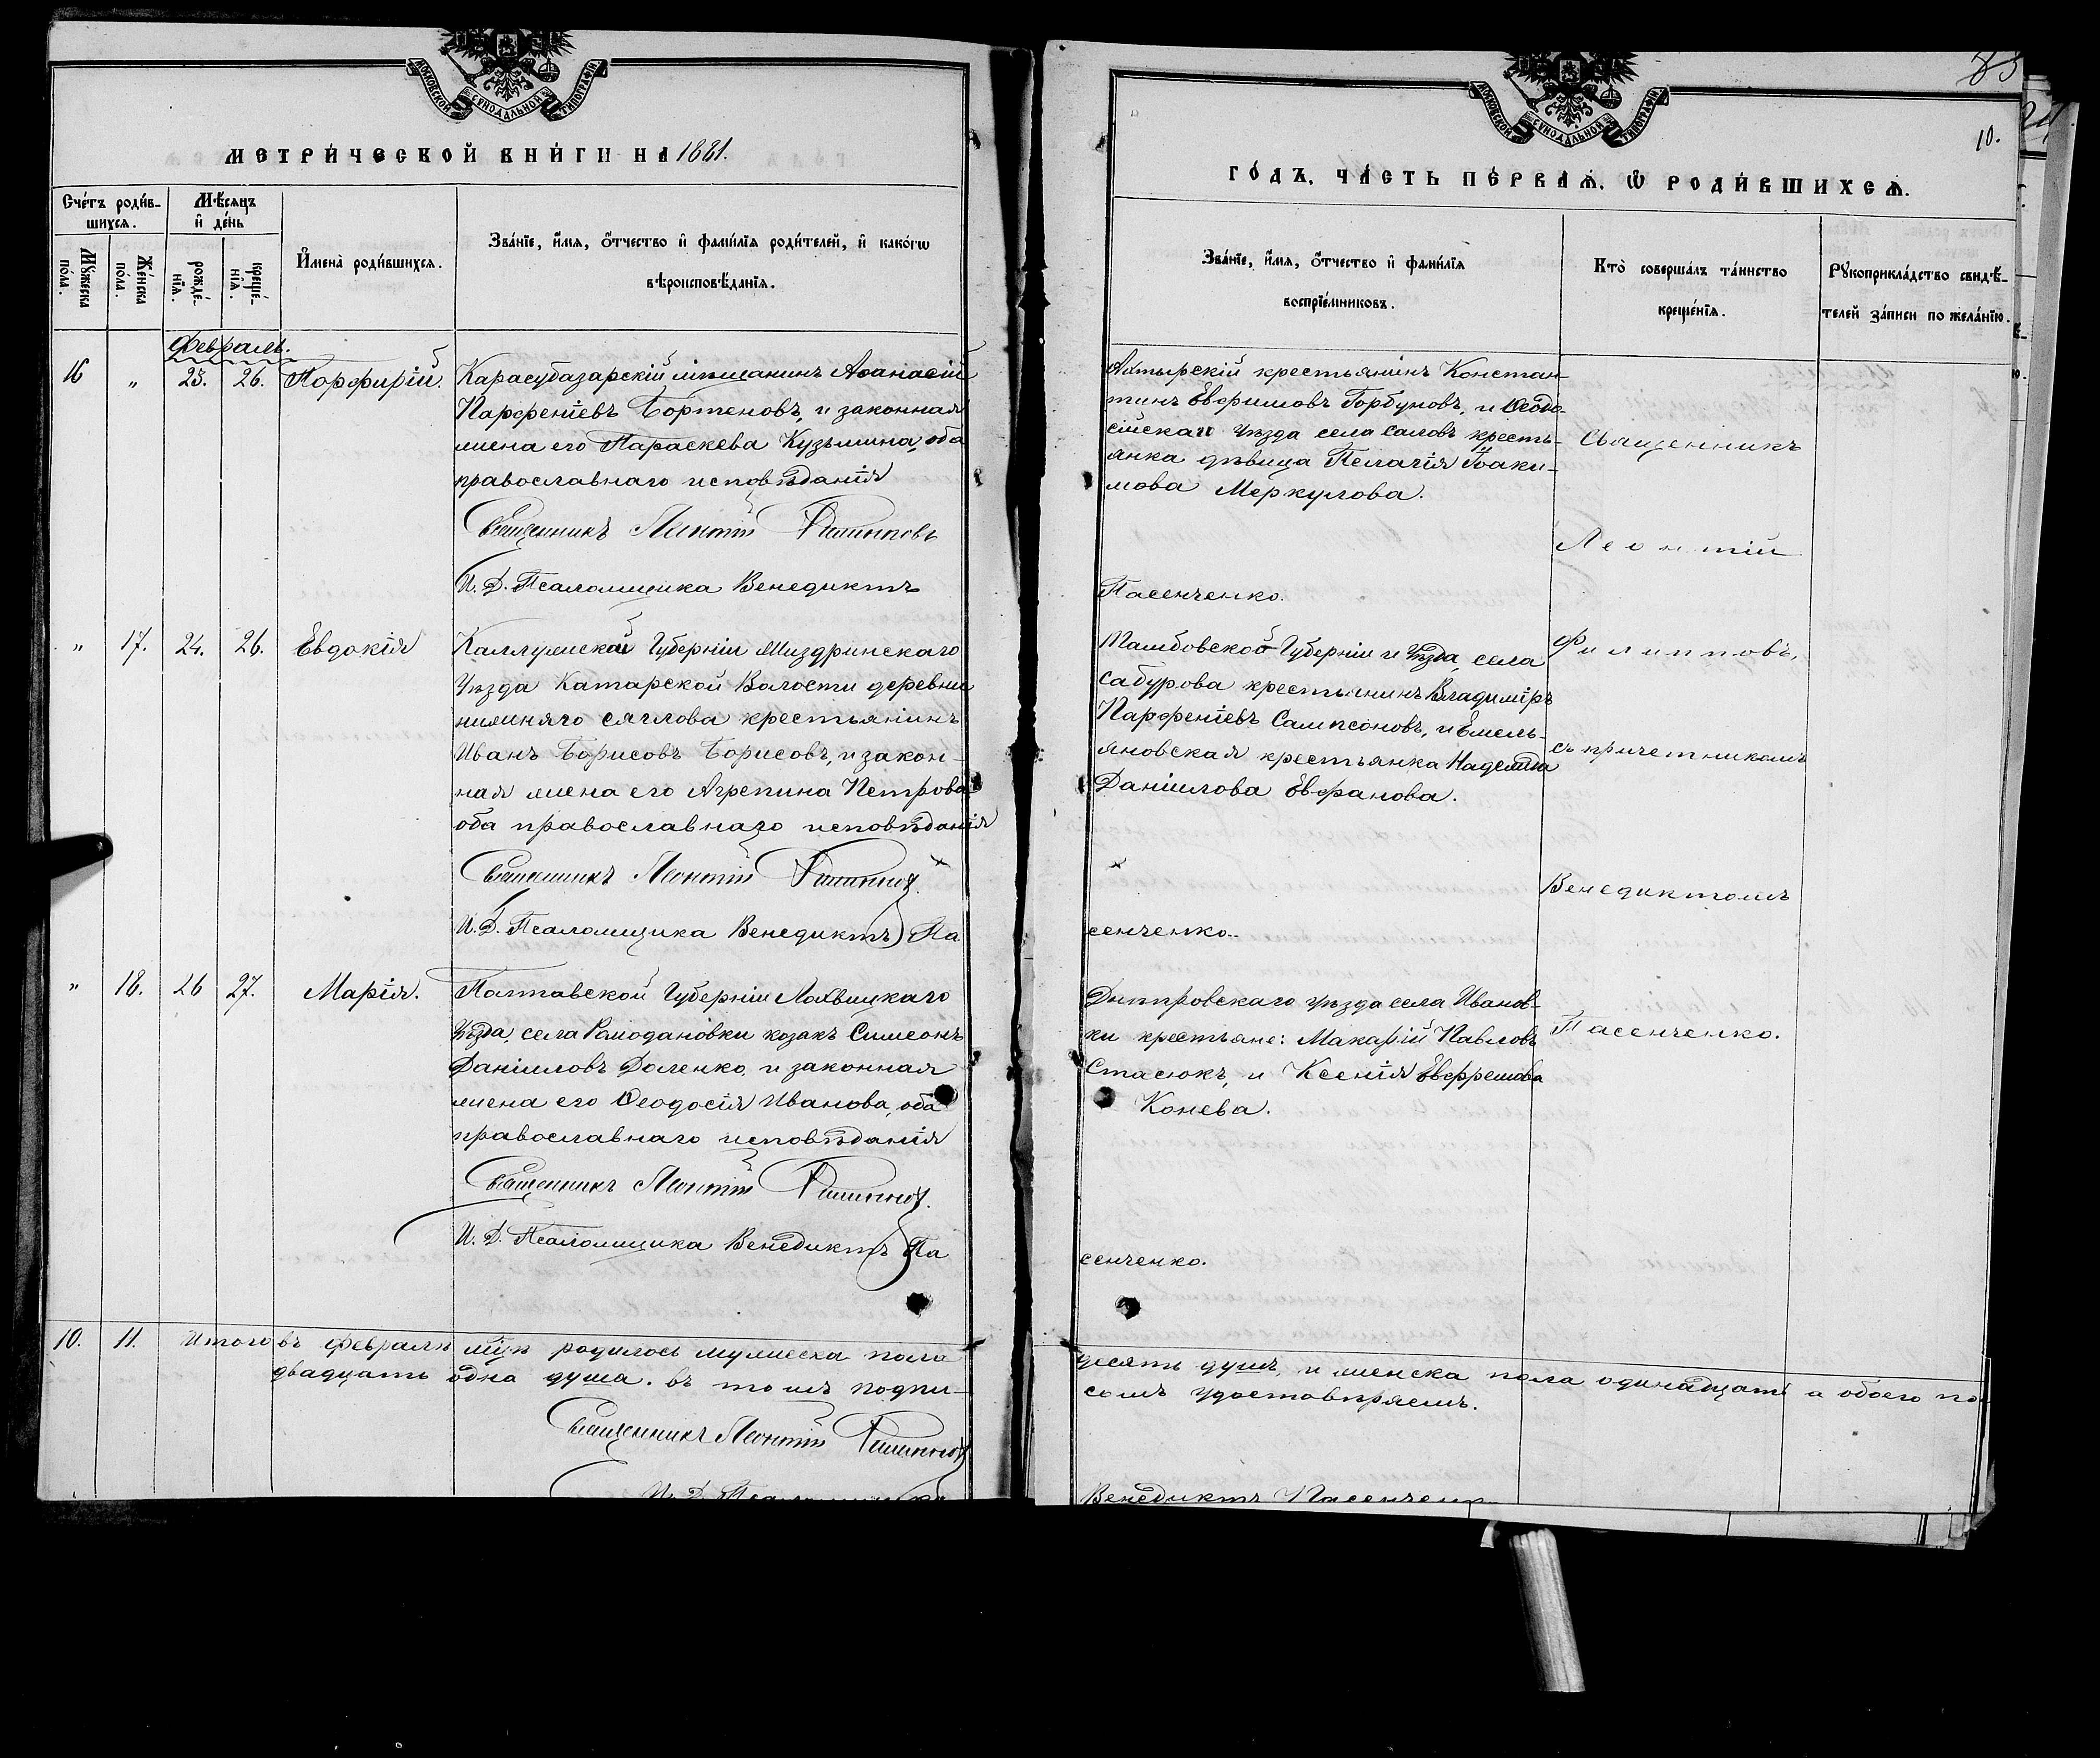 МОСКОВСКОЙ СѴНОДАЛЬНОЙ ТИПОГРАФІИ
МЕТРИ́ЧЕСКОЙ КНИ́ГИ НА 1881.
Сче́тъ роди́в-
шихся.
Мѣ́сяцъ
и҆ де́нь
Мꙋ́жеска по́ла.
Же́нска по́ла.
рожде́-нїя.
креще́-нїя.
И҆мена̀ роди́вшихся.
Зва́нїе, и҆́мя, ѻ҆́тчество и҆ фами́лїя роди́телей, и҆ како́гѡ
вѣроисповѣ́данїя.
Февраль.
16 " 23. 26. Порфирій.
Карасубазарскій мѣщанинъ Аѳанасій
Парѳеніевъ Бортеновъ, и законная
жена его Параскева Кузьмина, оба
православнаго исповѣданія
Священникъ Леонтій Филипповъ
И. Д. Псаломщика Венедиктъ
" 17. 24. 26. Евдокія
Губерніи
Уѣзда Катарской Волости деревни
нижняго крестьянинъ
Иванъ Борисовъ Борисовъ, и закон-
ная жена его Агрепина Петрова
оба православнаго исповѣданія
Священникъ Леонтій Филипповъ.
И. Д. Псаломщика Венедиктъ Па
" 18. 26 27. Марія.
Полтавской Губерніи Лохвицкаго
Уѣзда, села Рамодановки козакъ Симеонъ
Даніиловъ Доленко, и законная
жена его Ѳеодосія Иванова, оба
православнаго исповѣданія
Священникъ Леонтій Филипповъ.
И. Д. Псаломщика Венедиктъ Па
10. 11. Итого въ Февралѣ мцѣ родилось мужеска пола
двадцать одна душа. въ томъ подпи-
Священникъ Леонтій Филипповъ
И. Д. Псаломщика
МОСКОВСКОЙ СѴНОДАЛЬНОЙ ТИПОГРАФІИ
10.
ГО́ДЪ, ЧА́СТЬ ПЕ́РВАЯ, Ѡ҆ РОДИ́ВШИХСЯ.
Зва́нїе, и҆́мя, ѻ҆́тчество и҆ фами́лїя
воспрїе́мниковъ.
Кто̀ соверша́лъ та́инство
креще́нїя.
Рꙋкоприкла́дство свидѣ́-
телей за́писи по жела́нїю.
Ахтырскій крестьянинъ Констан-
тинъ Евфимовъ Горбуновъ, и Ѳеодо-
сійскаго Уѣзда села Саловъ кресть-
янка дѣвица Пелагія Іоаки-
мова Меркулова.
Пасенченко.
Тамбовской Губерніи и Уѣзда, села
Сабурова крестьянинъ Владиміръ
Парѳеніевъ Сампсоновъ, и Емель-
яновская крестьянка Надежда
Даніилова Евфанова.
сенченко.
Днѣпровскаго уѣзда села Иванов-
ки крестьяне: Макарій Павловъ
Стасюкъ, и Ксенія
Конева.
сенченко.
Священникъ
Леонтій
Филипповъ,
съ причетникомъ
Венедиктомъ
Пасенченко.
десять душъ, и женска пола одинадцать а обоего по-
сомъ удостовѣряемъ.
Венедиктъ Пасенченко